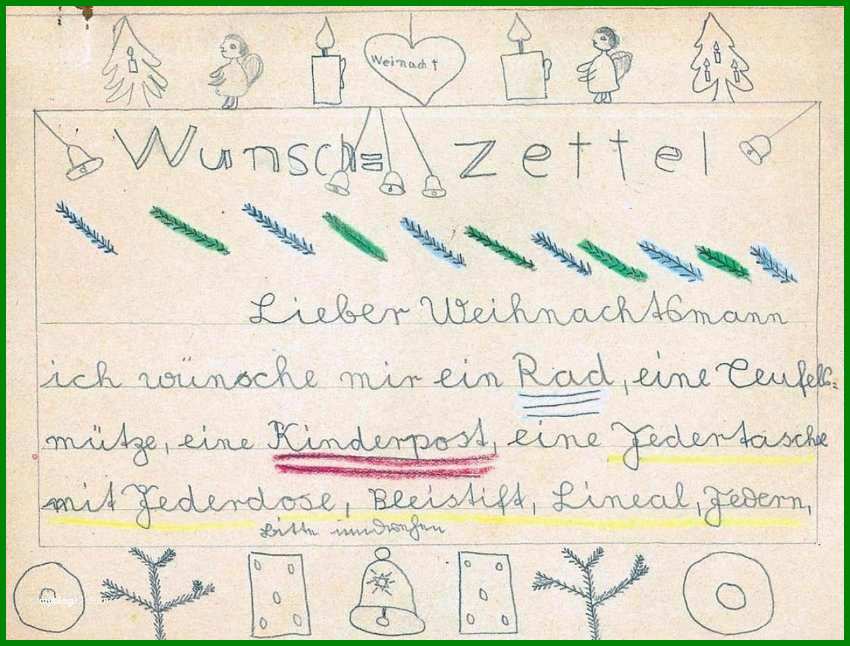 Weinacht
Wunsch= zettel
Lieber Weihnachtsmann
ich wünsche mir ein Rad, eine Teufels=
mütze, eine Kinderpost, eine Federtasche
mit Federdose, Bleistift, Lineal, Federn,
Bitte umdrehen